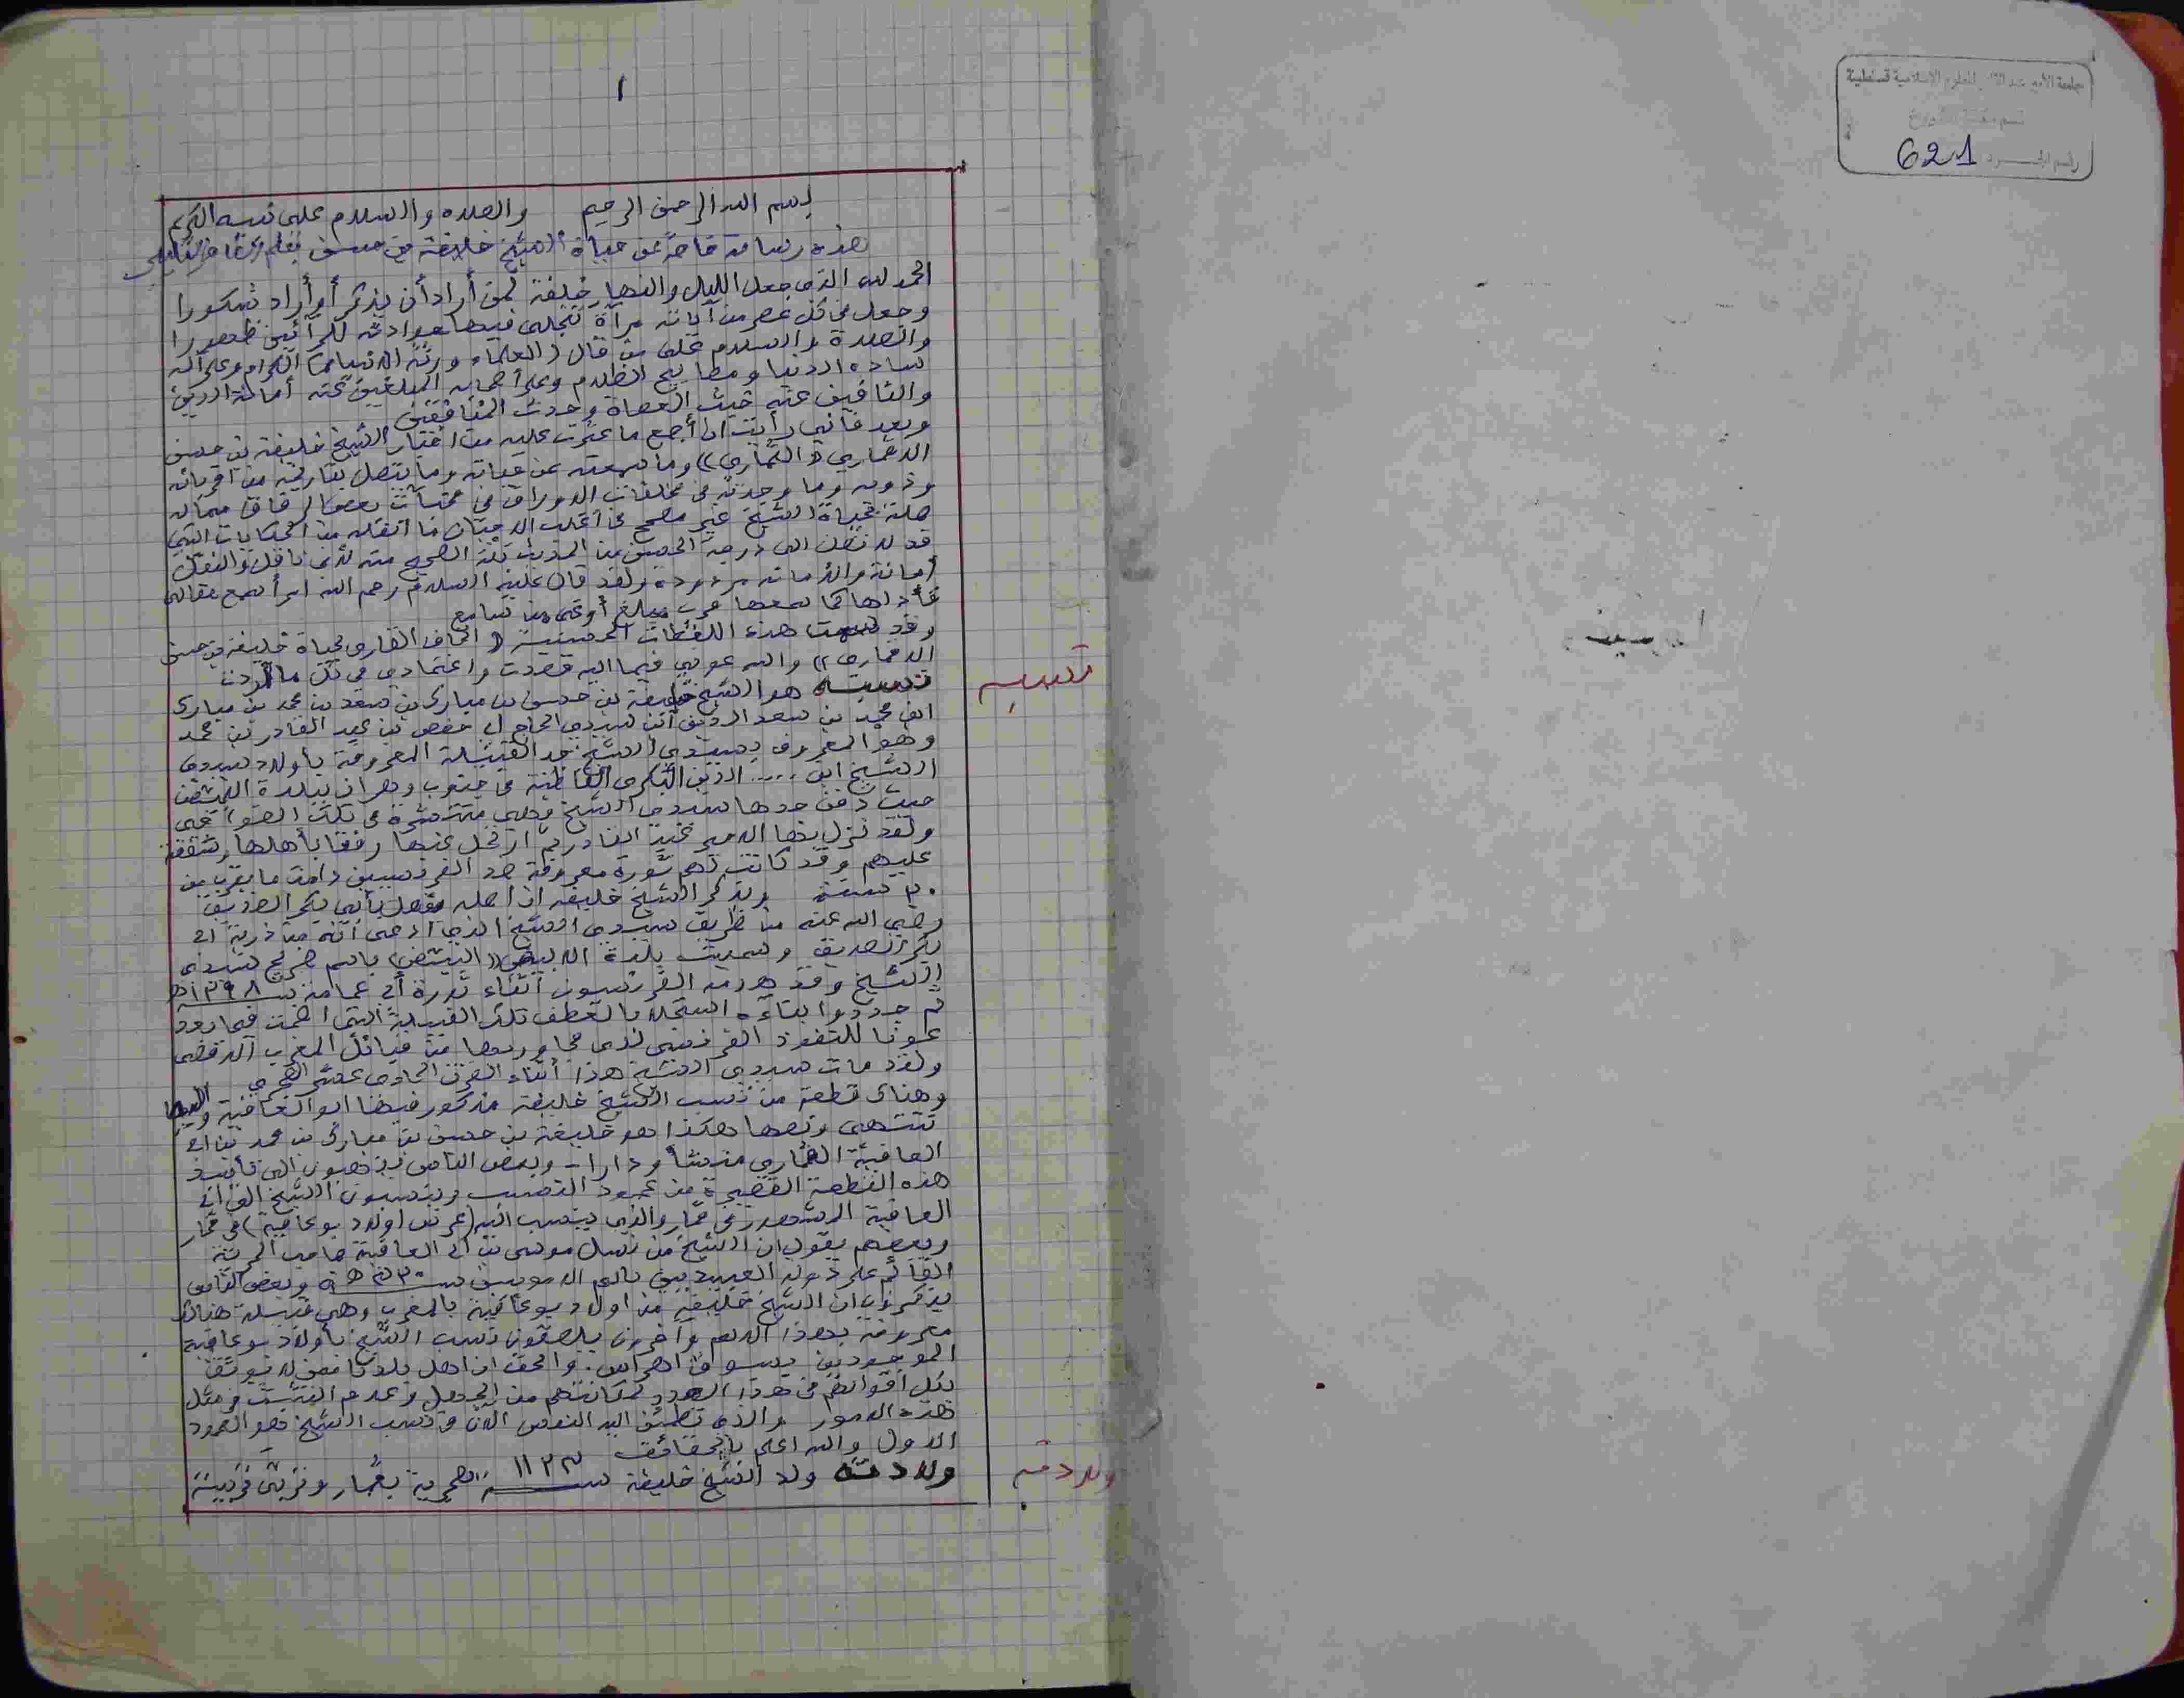 جامعة الأمير عبد القادر للعلوم الإسلامية قسنطينة
رقم الجرد 621
١
بسم الله الرحمن الرحيم والصلاه والسلام على نبيه الكريم
هذه رسالة خاصة عن حياة الشيخ خليفة بن حسن بقلم
الحمد لله الذي جعل الليل والنهار خليفة لمن أراد أن يذكر أو أراد شكورا
وجعل في كل عصر من آياته مرآة تتجلى فيها حوادثه للرائين ظهورا
والصلاة والسلام على من قال (العلماء ورثة الانبياء) الكرام وعلى آله
ساده الدنيا ومصابيح الظلام وعلى أصحابه المبلغين عنه أمانة الدين
والنافين عنه خبث العصاة وحدث المنافقين
وبعد فاني رأيت ان أجمع ما عثرت عليه من اخبار الشيخ خليفة بن حسن
الاقماري ((القماري)) وما سمعته عن حياته وما يتصل بتاريخه من اقربائه
وذويه وما وجدته في مخلفات الاوراق في مختبآت بعض الرفاق مما له
صلة بحياة الشيخ غير مصحح في أغلب الاحيان ما انقله من الحكايات التي
قد لا تصل الى درجة الحسن من الحديث بله الصحيح منه لأني ناقل والنقل
أمانة والأمانه مردودة ولقد قال عليه السلام رحم الله امرأ سمع مقالتي
فأداها كما سمعها فرب مبلغ أوعى من سامع
وقد سميت هذه اللقطات الخمسينية (( اتحاف القارى بحياة خليفة بن حسن
الاقمارى)) والله عوني فيما اليه قصدت واعتمادي في كل ما أردت
نسبه
نسبه هو الشيخ خليفة بن حسن بن مبارك بن سعد بن محمد بن مبارك
ابن محمد بن سعد الدين ابن سيدي الحاج أبي حفص بن عبد القادر بن محمد
وهو المعروف بسيدي الشيخ جد القبيلة المعروفة باولاد سيدى
الشيخ ابن ..... الدين البكرى القاطنة في جنوب وهران ببلدة البيض
حيث دفن جدها سيدي الشيخ وهي منتشرة في تلك الضواحي
ولقد نزل بها الامير عبد القادر ثم ارتحل عنها رفقا بأهلها وشفقة
عليهم وقد كانت لهم ثورة معروفة ضد الفرنسيين دامت ما يقرب من
٢٠ سنة ويذكر الشيخ خليفه ان اصله متصل بأبي بكر الصديق
رضي الله عنه من طريق سيدي الشيخ الذي ادعى أنه من ذرية أبي
بكر الصديق وسميت بلدة الابيض ((البيض)) باسم ضريح سيدى
الشيخ وقد هدمه الفرنسيون أثناء ثورة أبي عمامة سنة ١٢٩٨ ه
ثم جددوا بناءه استجلابا لعطف تلك القبيلة التي اضحت فيما بعد
عونا للنفوذ الفرنسي لدى مجاوريها من قبائل المغرب الاقصى
ولقد مات سيدي الشيخ هذا أثناء القرن الحادي عشر الهجري
وهناك قطعة من نسب الشيخ خليفة مذكور فيها ابو العافية واليها
تنتهي ونصها هكذا هو خليفة بن حسن بن مبارك بن محمد بن أبي
العافية القماري منشأ ودارا - وبعض الناس يذهبون الى تأييد
هذه القطعة القصيرة من عمود النسب وينسبون الشيخ الى أبي
العافية المشهور في قمار والذي ينسب اليه (عرش اولاد بوعافية) في قمار
وبعضهم يقول ان الشيخ من نسل موسى بن أبي العافية صاحب
القائم على دولة العبيديين باسم الامويين سنة ه وبعض الناس
يذكرون ان الشيخ خليفة من اولاد بوعافية بالمغرب وهي قبيلة هناك
معروفة بهذا الاسم وآخرون يلصقون نسب الشيخ بأولاد بوعافية
الموجودين بسوق اهراس . والحق ان اهل بلدنا ممن لا يوثق
بكل اقوالهم في هذا الصدد لمكانتهم من الجهل وعدم التثبت في مثل
هذه الامور والذي تطمئن اليه النفس الآن في نسب الشيخ هو العمود
الاول والله اعلم بالحقائق
ولادته
ولادته ولد الشيخ خليفة سنة ١١٢٣ هجرية بقمار وتربى تربية